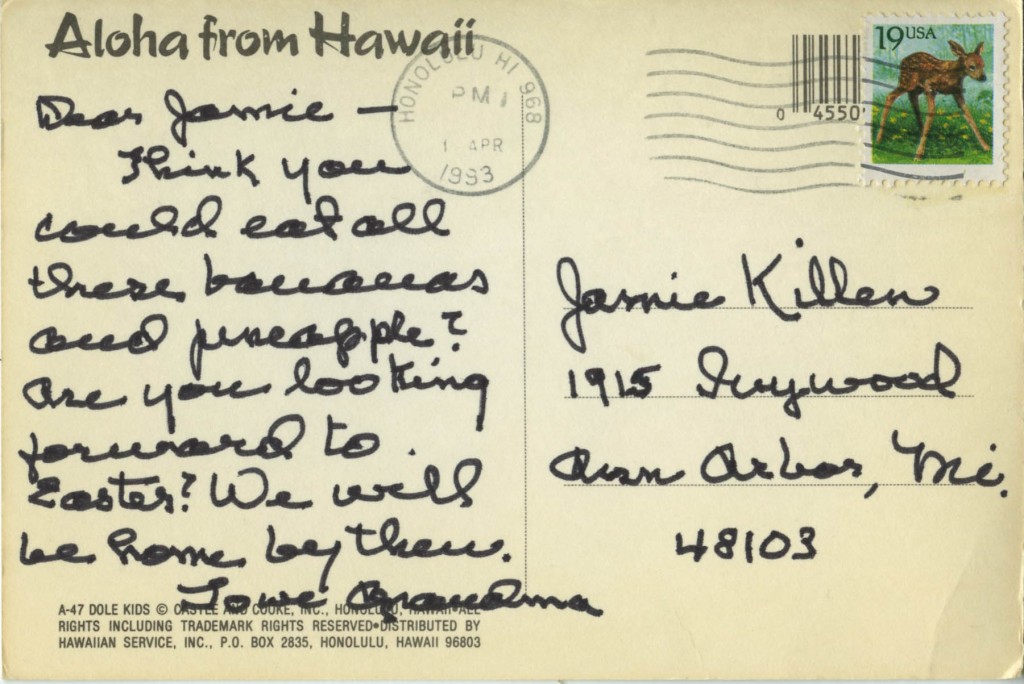 Aloha from Hawaii
HONOLULU HI 968
PM
1 APR
1993
0 4550
19 USA
Dear Jamie —
Think you
could eat all
these bananas
and pineapple?
Are you looking
forward to
Easter? We will
be home by then.
Love Grandma
Jamie Killen
1915 Ivywood
Ann Arbor, Mi.
48103
A-47 DOLE KIDS © CASTLE AND COOKE, INC., HONOLULU, HAWAII•ALL
RIGHTS INCLUDING TRADEMARK RIGHTS RESERVED•DISTRIBUTED BY
HAWAIIAN SERVICE, INC., P.O. BOX 2835, HONOLULU, HAWAII 96803